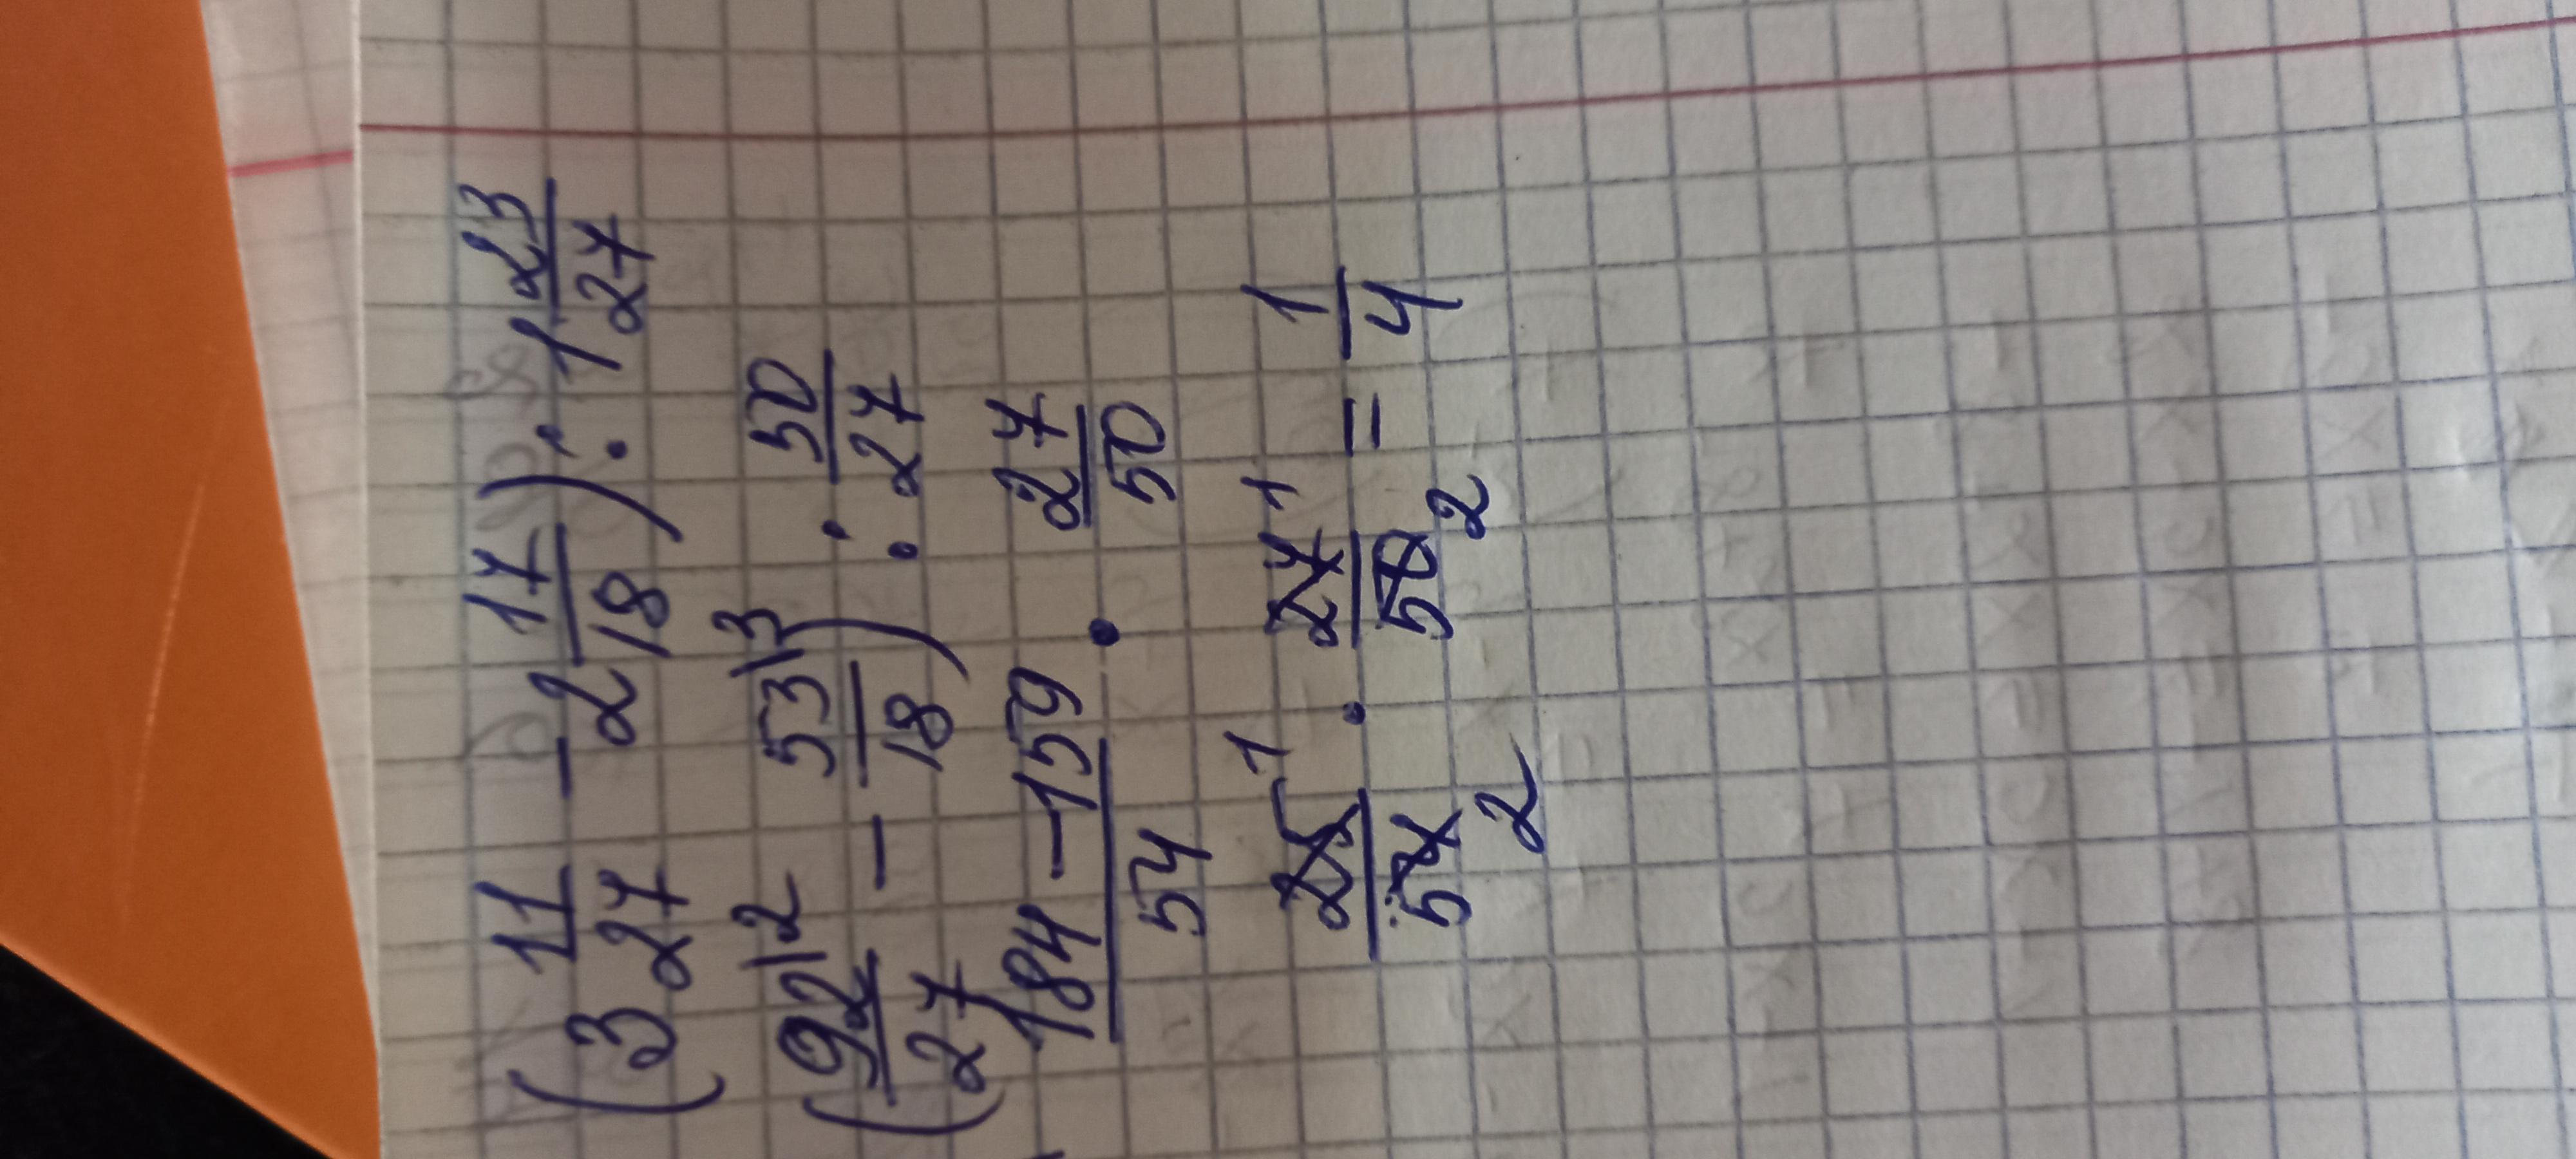 (3 11/27 - 2 17/18) : 1 23/27
(92/27 |2 - 53/18 |3) : 50/27
184 - 159/54 · 27/50
25/54 1 2 · 27/50 1 2 = 1/4